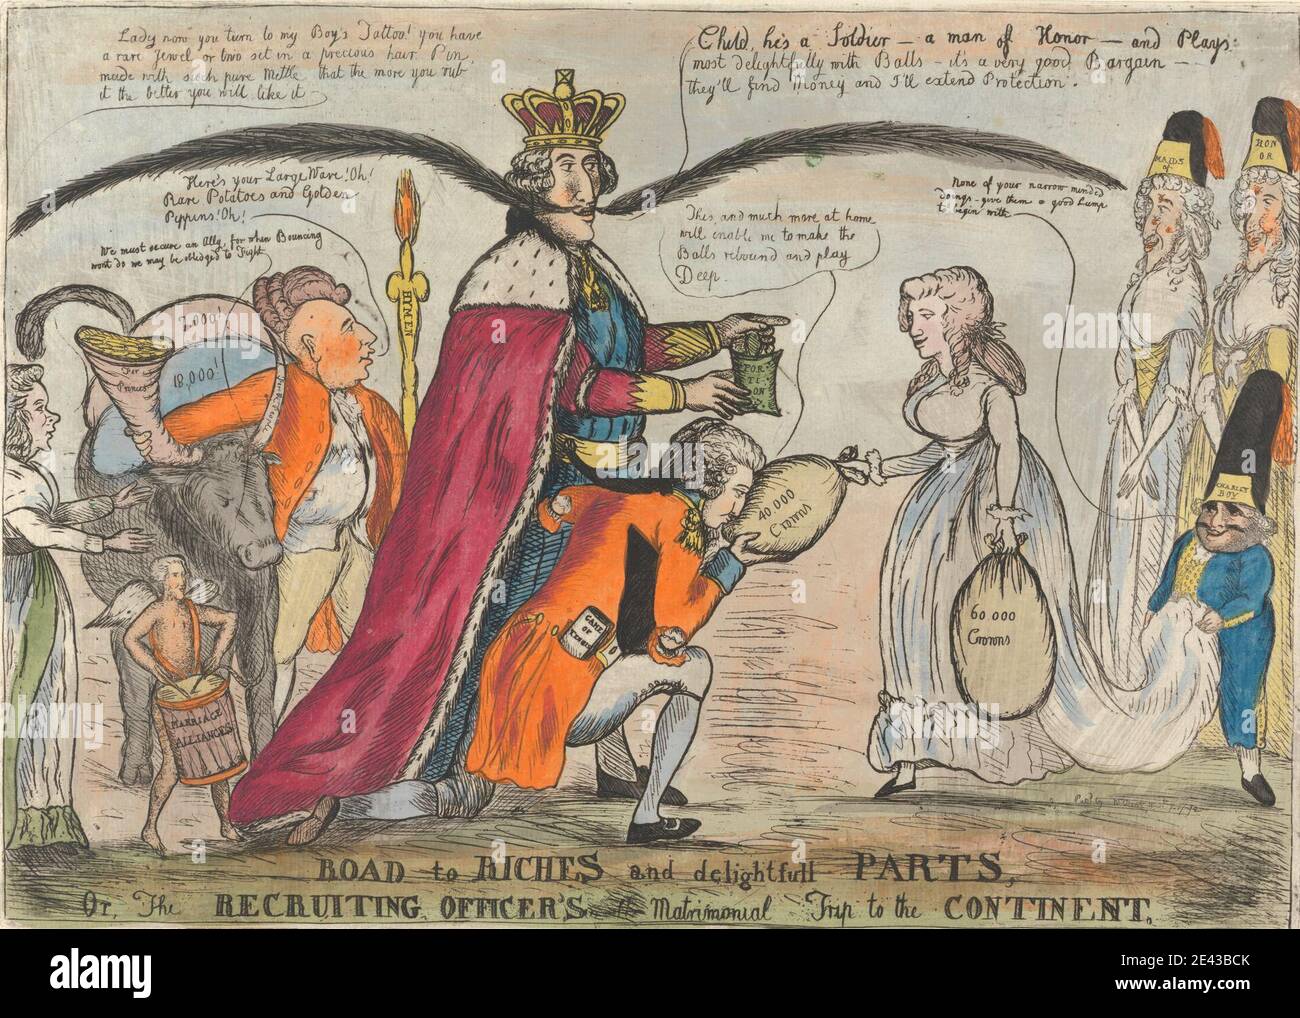 Lady now you turn to my Boy's Tattoo! you have
a rare Jewel or two set in a precious hair Pin,
made with such pure Mettle that the more you rub
it the better you will like it
Child, he's a Soldier — a man of Honor — and Plays
most delightfully with Balls — it's a very good Bargain —
they'll find money and I'll extend Protection.
Here's your Large Ware! Oh!
Rare Potatoes and Golden
Pippins! Oh!
We must secure an Ally, for when Bouncing
wont do we may be obliged to Fight
This and much more at home
will enable me to make the
Balls rebound and play
Deep
None of your narrow minded
doings - give them a good Lump
to begin with
MAIDS
of
HON
OR
CHARLEY
BOY
HYMEN
2,000!
18,000!
For
Princes
POR
TI
ON
40.000
Crowns
60.000
Crowns
GAME
OF
TENNIS
MARRIAGE
ALLIANCES
ROAD to RICHES and delightfull PARTS,
Or, The RECRUITING OFFICER'S Matrimonial Trip to the CONTINENT.
alamy
Image ID: 2E43BCK
www.alamy.com